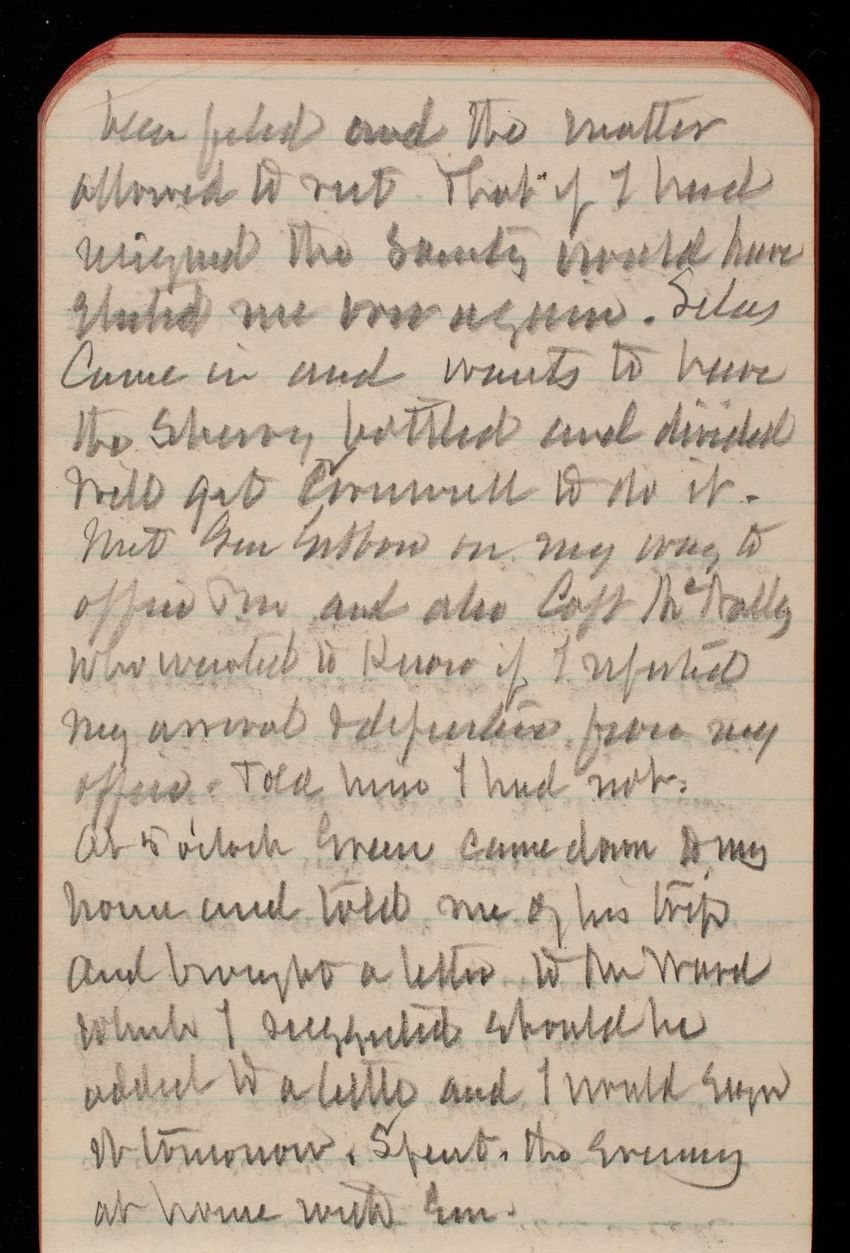 been filed and the matter
allowed to rest. That if I had
resigned the Society would have
Elected me over again. Silas
Came in and wants to have
the Sherry bottled and divided
Will get Cornwell to do it.
Met Gen Gibbon on my way to
office this and also Capt McNally
who wanted to Know if I reported
my arrival & departure from my
office. Told him I had not.
At 5 o'clock Green came down to my
house and told me of his trip
and brought a letter to Mr Ward
which I suggested should be
added to a little and I would Sign
it tomorrow. Spent. the Evening
at home with Em.